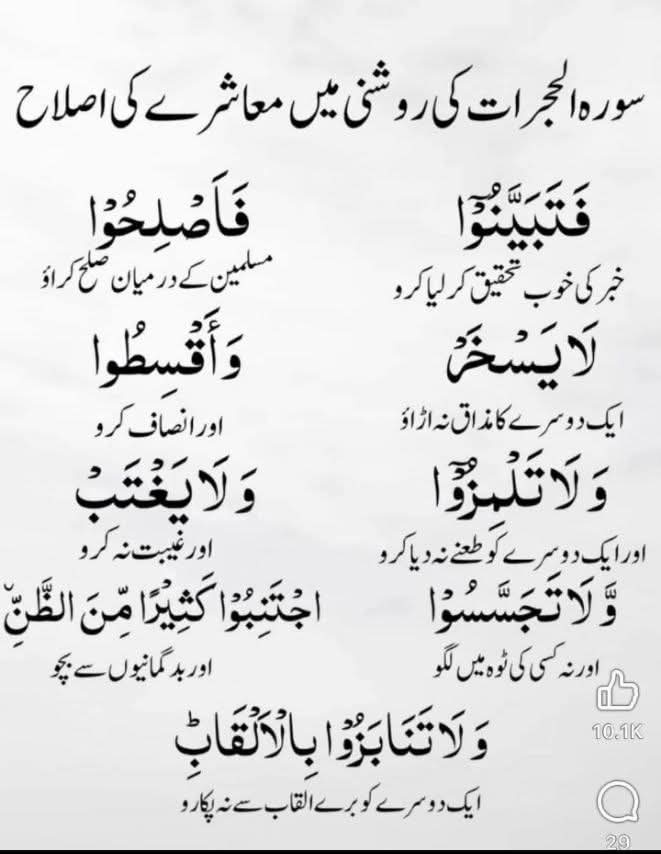 سورہ الحجرات کی روشنی میں معاشرے کی اصلاح
فَتَبَيَّنُوْٓا
خبر کی خوب تحقیق کر لیا کرو
فَاَصْلِحُوْا
مسلمین کے درمیان صلح کراؤ
لَا يَسْخَرْ
ایک دوسرے کا مذاق نہ اڑاؤ
وَأَقْسِطُوا
اور انصاف کرو
وَلَا تَلْمِزُوْٓا
اور ایک دوسرے کو طعنے نہ دیا کرو
وَلَا يَغْتَبْ
اور غیبت نہ کرو
وَّلَا تَجَسَّسُوْا
اور نہ کسی کی ٹوہ میں لگو
اجْتَنِبُوْا كَثِيْرًا مِّنَ الظَّنِّ
اور بدگمانیوں سے بچو
وَلَا تَنَابَزُوْا بِالْاَلْقَابِ ؕ
ایک دوسرے کو برے القاب سے نہ پکارو
10.1K
29